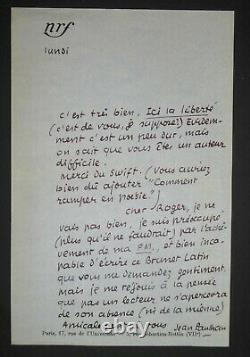 nrf
lundi
c'est très bien, Ici la liberté
(c'est de vous, je suppose?) Évidem-
ment c'est un peu dur, mais
on sait que vous êtes un auteur
difficile.
Merci du Swift. (Vous auriez
bien dû ajouter "Comment
ramper en poésie"?)
cher Roger, je ne
vais pas bien, je suis préoccupé
(plus qu'il ne faudrait) par l'achè-
vement de ma
et bien inca-
pable d'écrire ce Brunet Latin
que vous me demandez gentiment.
mais je me réjouis à la pensée
que pas un lecteur ne s'apercevra
de son absence (ni de la mienne).
Paris, 17, rue de l'Université — Sébastien-Bottin (VIIe)
Amicalement à vous
Jean Paulhan